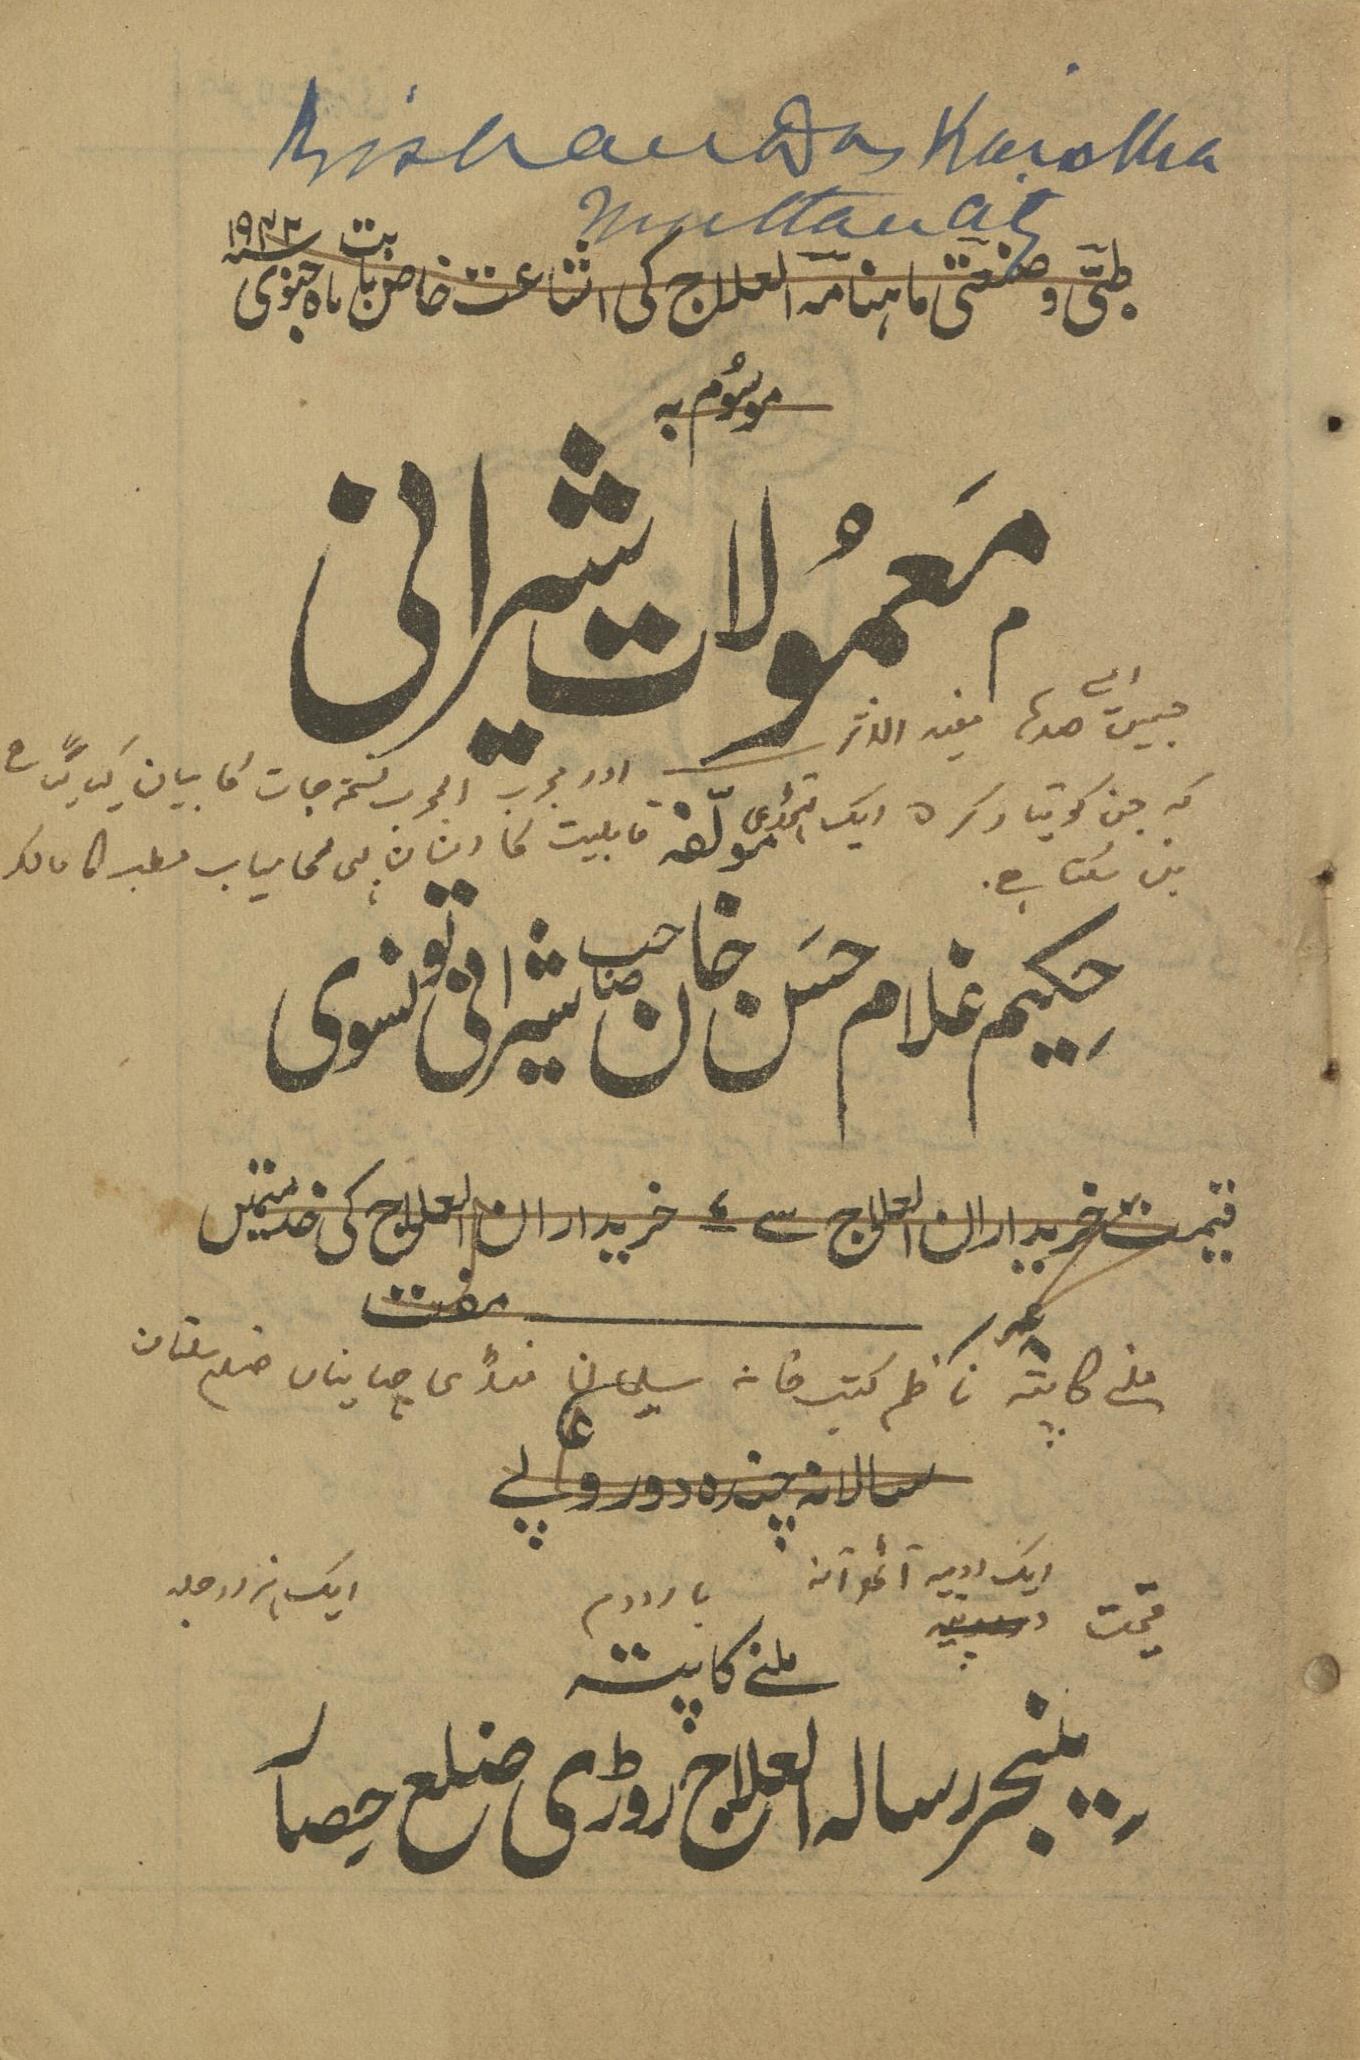 Bishan Das
Multan
طبّی و صنعتی ماہنامہ العلاج کی اشاعت خاص بابت ماہ جنوری
موسُوم بہ
مَعمُولات شیرانی
جسمیں ایسے صدہا مفید الاثر اور مجرب المجرب نسخہ جات کا بیان کیا گیا ہے
کہ جن کو تیار کر کے ایک قابلیت کا انسان بھی کامیاب مطب کا مالک
بن سکتا ہے۔
مولّفہ
حکیم غلام حسَن خان صاحب شیرانی تونسوی
قیمت خریداران العلاج سے خریداران العلاج کی خدمتمیں
مفت
ملنے کا پتہ ناظم کتب خانہ سلیمانی منڈی ضلع ملتان
سالانہ چندہ دو روپے
قیمت ایک روپیہ آٹھ آنہ بار دوم ایک ہزار جلد
ملنے کا پتہ
مینجر رسالہ العلاج روڑی ضلع حصار